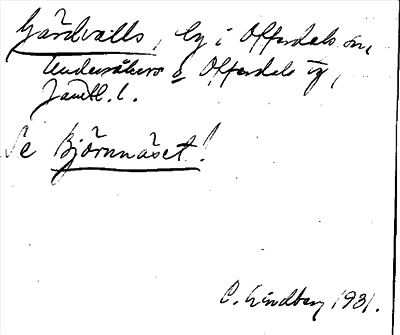 Gärdvalls, by i Offerdals sn,
Undersåkers o Offerdals tg,
Jämtl. l.
Se Björnnäset!
C. Lindberg 1931.